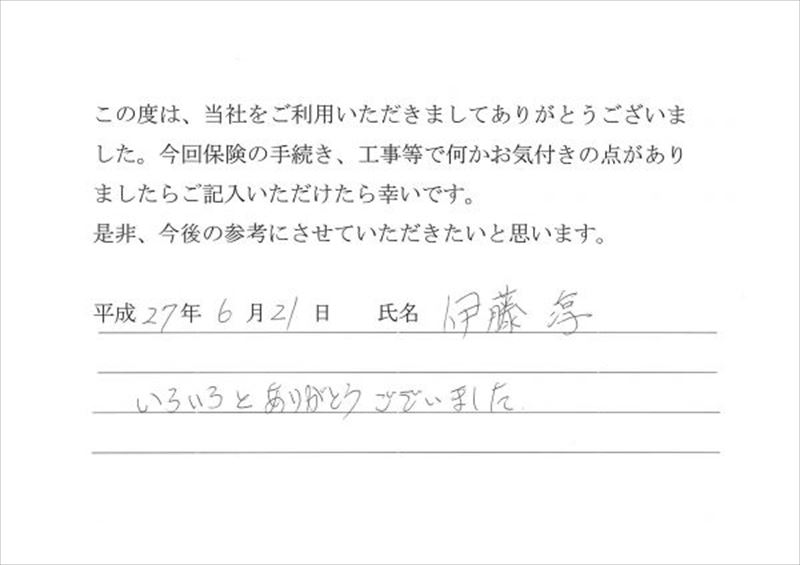 この度は、当社をご利用いただきましてありがとうございま
した。今回保険の手続き、工事等で何かお気付きの点があり
ましたらご記入いただけたら幸いです。
是非、今後の参考にさせていただきたいと思います。
平成27年 6月21日 氏名 伊藤 淳
いろいろとありがとうございました.